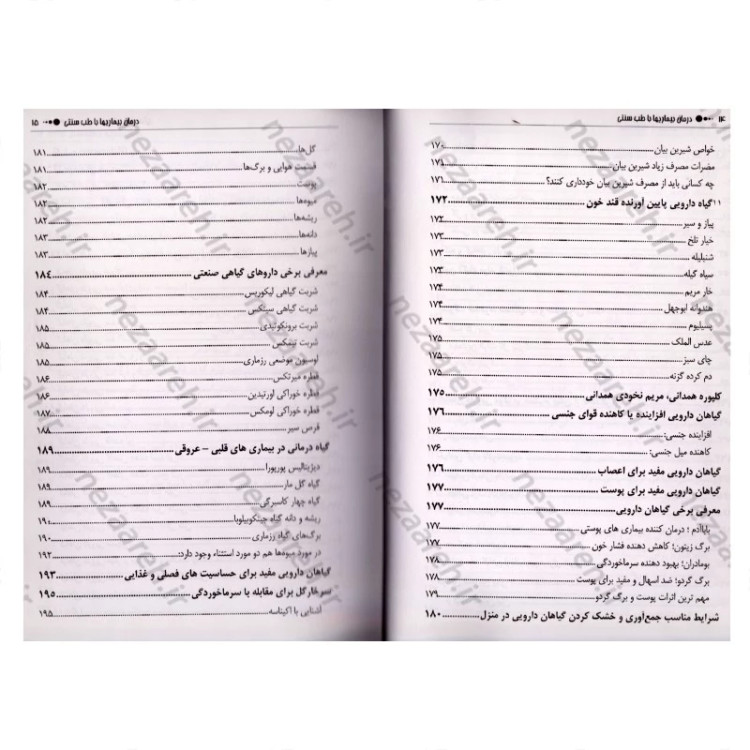 ۱۴ درمان بیماریها با طب سنتی
خواص شیرین بیان ۱۷۰
مضرات مصرف زیاد شیرین بیان ۱۷۰
چه کسانی باید از مصرف شیرین بیان خودداری کنند؟ ۱۷۱
۱۱گیاه دارویی پایین آورنده قند خون ۱۷۲
پیاز و سیر ۱۷۲
خیار تلخ ۱۷۳
شنبلیله ۱۷۳
سیاه گیله ۱۷۳
خار مریم ۱۷۴
هندوانه ابوجهل ۱۷۴
پسیلیوم ۱۷۴
عدس الملک ۱۷۵
چای سبز ۱۷۵
دم کرده گزنه ۱۷۵
کلپوره همدانی، مریم نخودی همدانی ۱۷۵
گیاهان دارویی افزاینده یا کاهنده قوای جنسی ۱۷۶
افزاینده جنسی: ۱۷۶
کاهنده میل جنسی: ۱۷۶
گیاهان دارویی مفید برای اعصاب ۱۷۶
گیاهان دارویی مفید برای پوست ۱۷۷
معرفی برخی گیاهان دارویی ۱۷۷
باباآدم ؛ درمان کننده بیماری های پوستی ۱۷۷
برگ زیتون؛ کاهش دهنده فشار خون ۱۷۷
بومادران؛ بهبود دهنده سرماخوردگی ۱۷۸
برگ گردو؛ ضد اسهال و مفید برای پوست ۱۷۸
مهم ترین اثرات پوست و برگ گردو ۱۷۹
شرایط مناسب جمع‌آوری و خشک کردن گیاهان دارویی در منزل ۱۸۰
درمان بیماریها با طب سنتی ۱۵
گل‌ها ۱۸۱
قسمت هوایی و برگ‌ها ۱۸۱
پوست ۱۸۲
میوه‌ها ۱۸۲
ریشه‌ها ۱۸۲
دانه‌ها ۱۸۳
پیازها ۱۸۳
معرفی برخی داروهای گیاهی صنعتی ۱۸۴
شربت گیاهی لیکوریس ۱۸۴
شربت گیاهی سینکس ۱۸۴
شربت برونکوتیدی ۱۸۵
شربت تیمکس ۱۸۵
لوسیون موضعی رزماری ۱۸۵
قطره میرتکس ۱۸۶
قطره خوراکی اورتیدین ۱۸۶
قطره خوراکی لومکس ۱۸۷
قرص سیر ۱۸۸
گیاه درمانی در بیماری های قلبی – عروقی ۱۸۹
دیژیتالیس پورپورا ۱۸۹
گیاه گل مار ۱۸۹
گیاه چهار کاسبرگی ۱۸۹
ریشه و دانه گیاه جینکوبیلوبا ۱۹۰
برگ‌های گیاه رزماری ۱۹۰
در مورد میوه‌ها هم دو مورد استثناء وجود دارد: ۱۹۲
گیاهان دارویی مفید برای حساسیت های فصلی و غذایی ۱۹۳
سرخارگل برای مقابله با سرماخوردگی ۱۹۵
آشنایی با اکیناسه ۱۹۵
nezaareh.ir